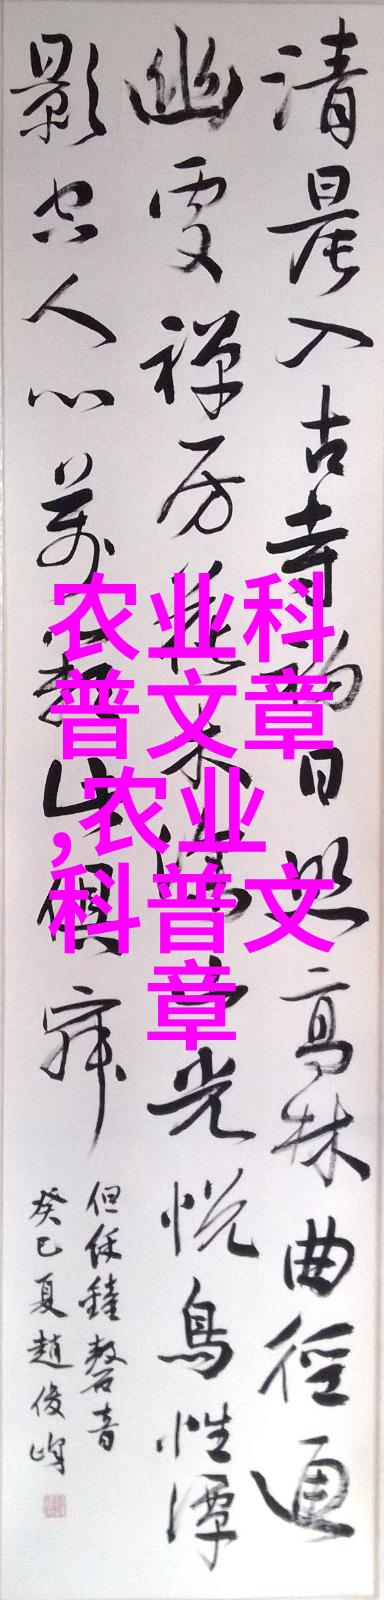 清晨入古寺初日照高林曲徑通
幽處禪房花木深山光悅鳥性潭
影空人心萬籟此俱寂
但餘鐘磬音
癸巳夏趙俊峰
农业科
普文章
,农业
科普文
章